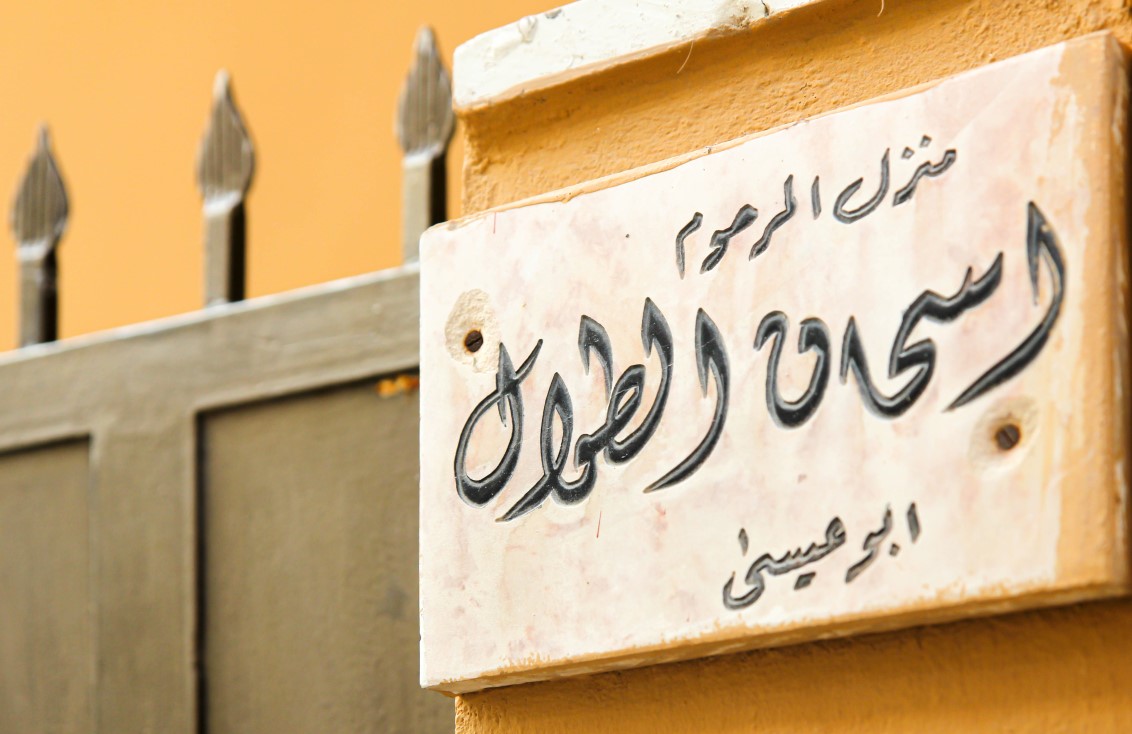 منزل المرحوم
اسحاق الطوال
ابو عيسى